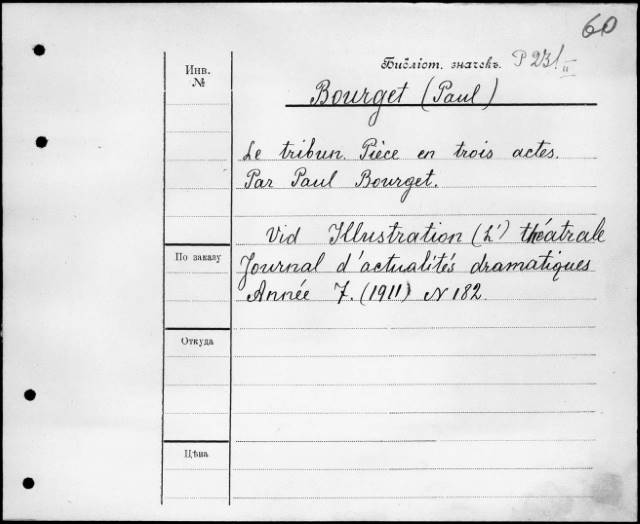 60
Библіот. значекъ. P 231 II
Инв. №
Bourget (Paul)
Le tribun. Pièce en trois actes.
Par Paul Bourget.
Vid Illustration (L') théatrale
По заказу
Journal d'actualités dramatiques
Année 7. (1911) N 182.
Откуда
Цѣна